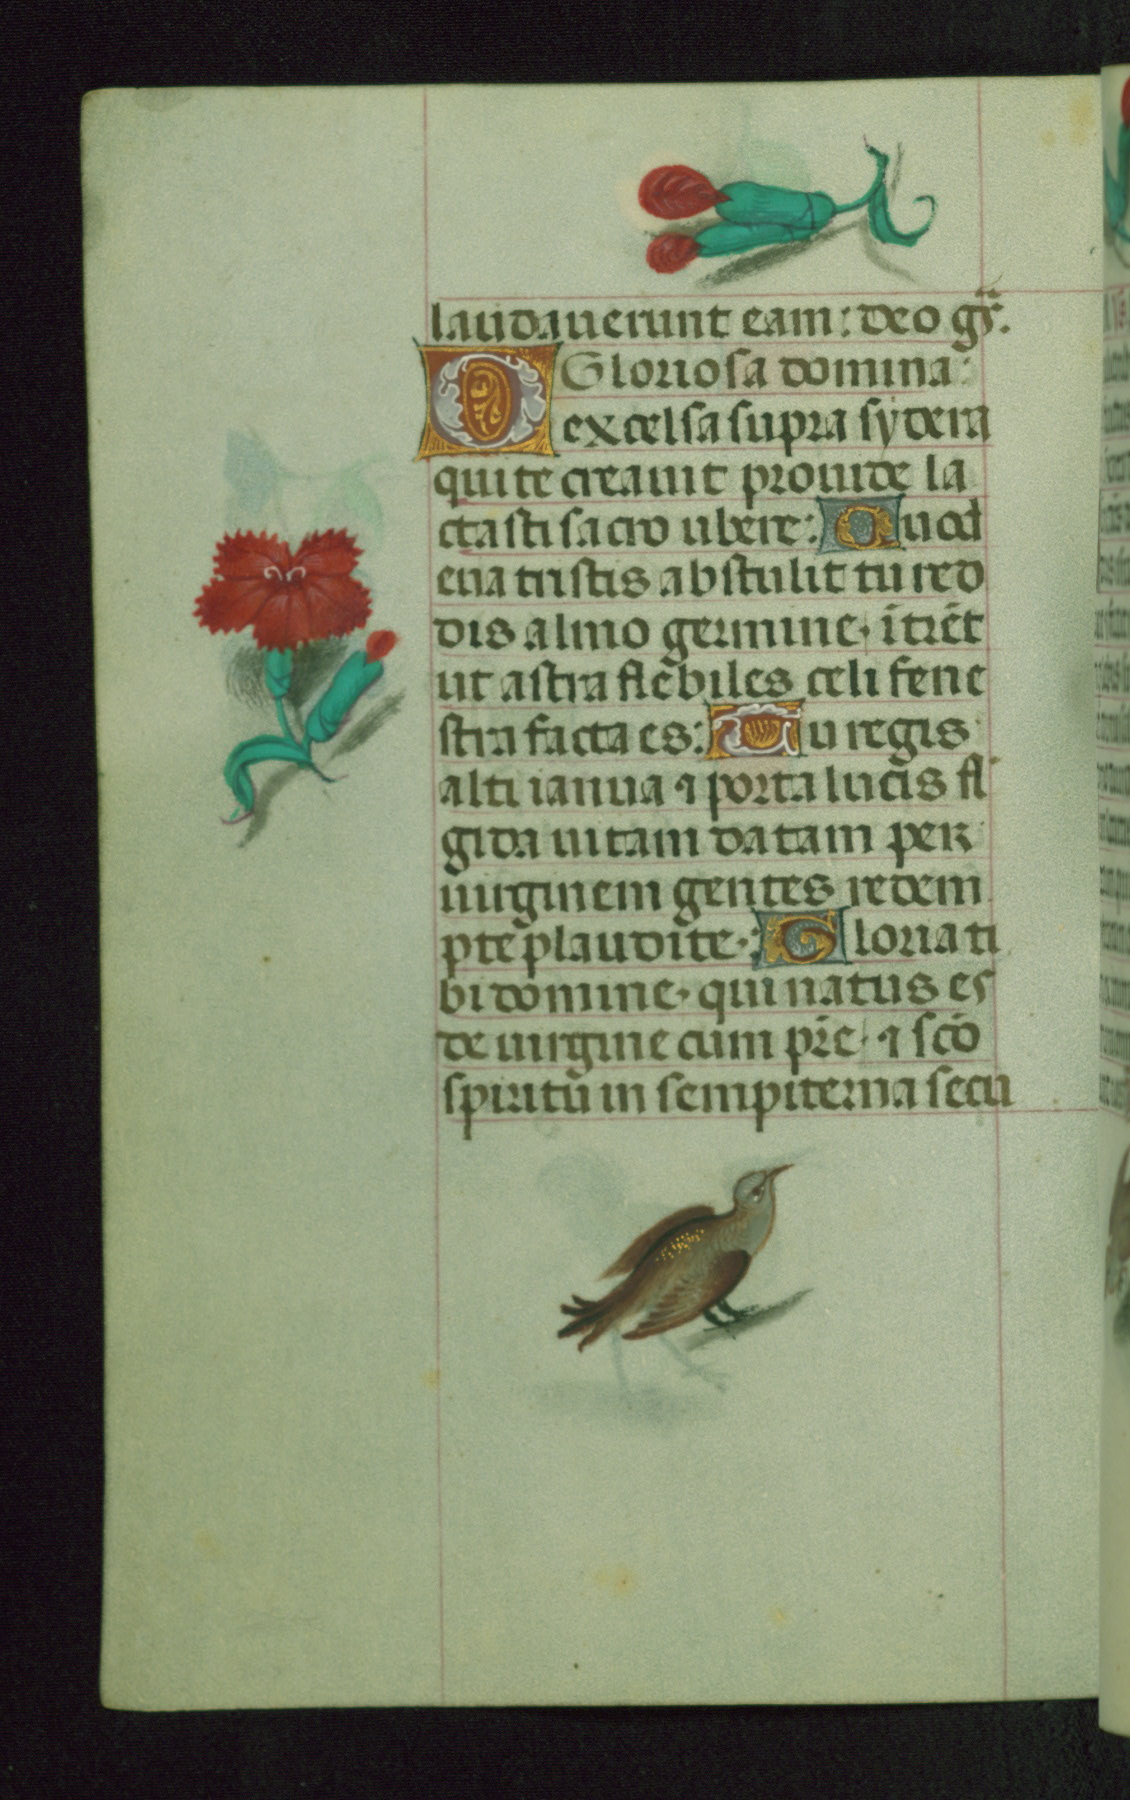 laudauerunt eam: deo gr̃s.
O Gloriosa domina:
excelsa supra sydera
qui te creauit prouide la
ctasti sacro ubere: Quod
eua tristis abstulit tu red
dis almo germine. ĩtrẽt
ut astra flẽbiles celi fene
stra facta es: Tu regis
alti ianua ⁊ porta lucis fl̃
gida uitam datam per
uirginem gentes redem
pte plaudite. Gloria ti
bi domine. qui natus es
de uirgine cum pr̃e. ⁊ scõ
spiritũ in sempiterna secu